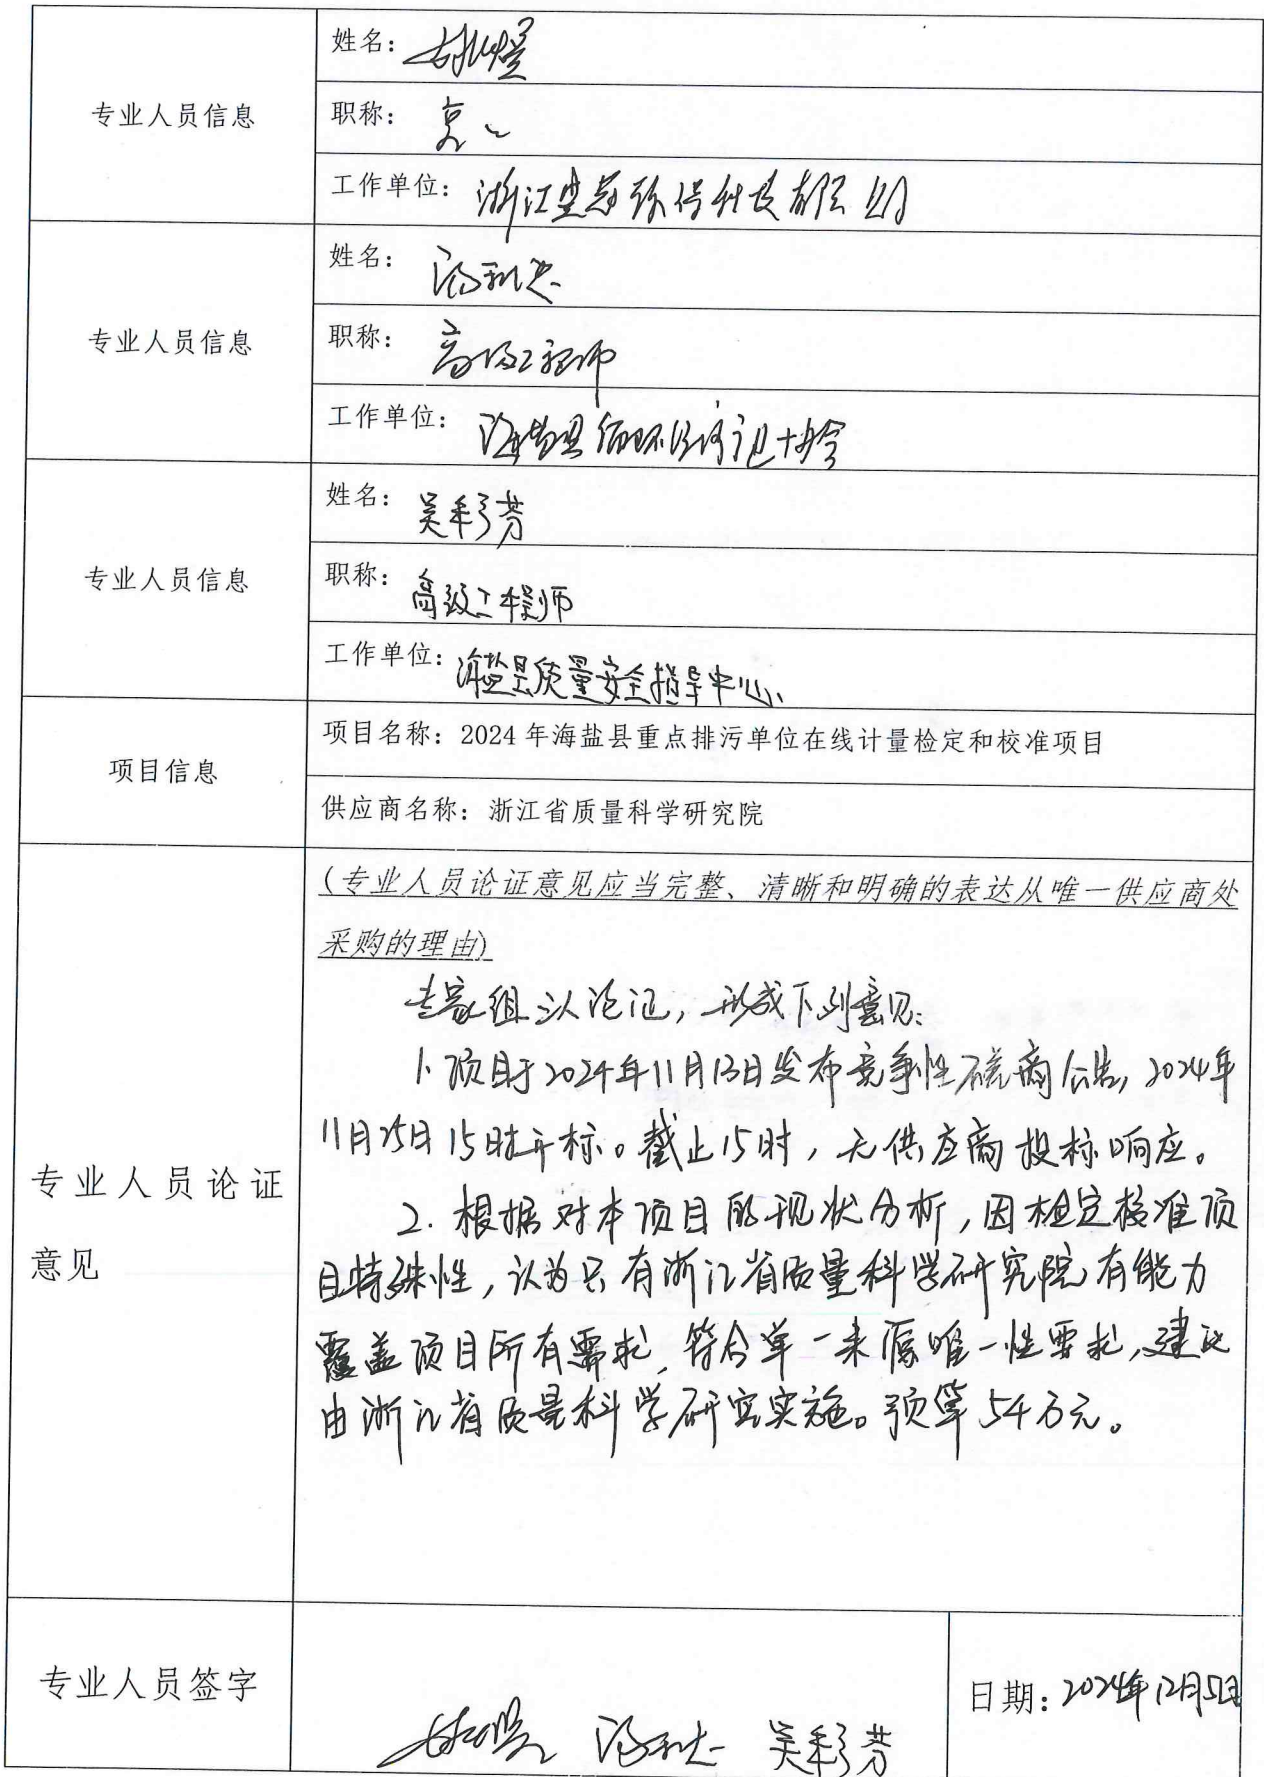 专业人员信息
姓名：
职称：高工
工作单位：浙江 环保科技有限公司
专业人员信息
姓名：
职称：高级工程师
工作单位：海盐县循环经济促进协会
专业人员信息
姓名：吴彩芳
职称：高级工程师
工作单位：海盐县质量安全指导中心
项目信息
项目名称：2024年海盐县重点排污单位在线计量检定和校准项目
供应商名称：浙江省质量科学研究院
专业人员论证
意见
(专业人员论证意见应当完整、清晰和明确的表达从唯一供应商处
采购的理由)
专家组 论证，形成下列意见：
1. 项目于2024年11月13日发布竞争性磋商公告，2024年
11月25日15时开标。截止15时，无供应商投标响应。
2. 根据对本项目的现状分析，因检定校准项
目特殊性，认为只有浙江省质量科学研究院有能力
覆盖项目所有需求，符合单一来源唯一性要求，建议
由浙江省质量科学研究实施。预算54万元。
专业人员签字
吴彩芳
日期：2024年12月5日